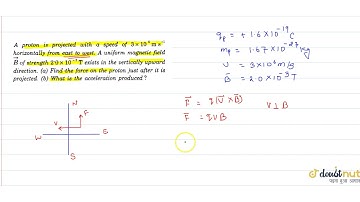 A proton is projected with a speed of 3×10⁶ m s⁻¹
horizontally from east to west. A uniform magnetic field
B⃗ of strength 2·0×10⁻³ T exists in the vertically upward
direction. (a) Find the force on the proton just after it is
projected. (b) What is the acceleration produced ?
qp = + 1.6×10⁻¹⁹ C
mp = 1.67×10⁻²⁷ kg
V = 3×10⁶ m/s
B⃗ = 2.0×10⁻³ T
F⃗ = q(V⃗ × B⃗) V ⊥ B
F = qVB
N
F
V
W E
S
doubtnut